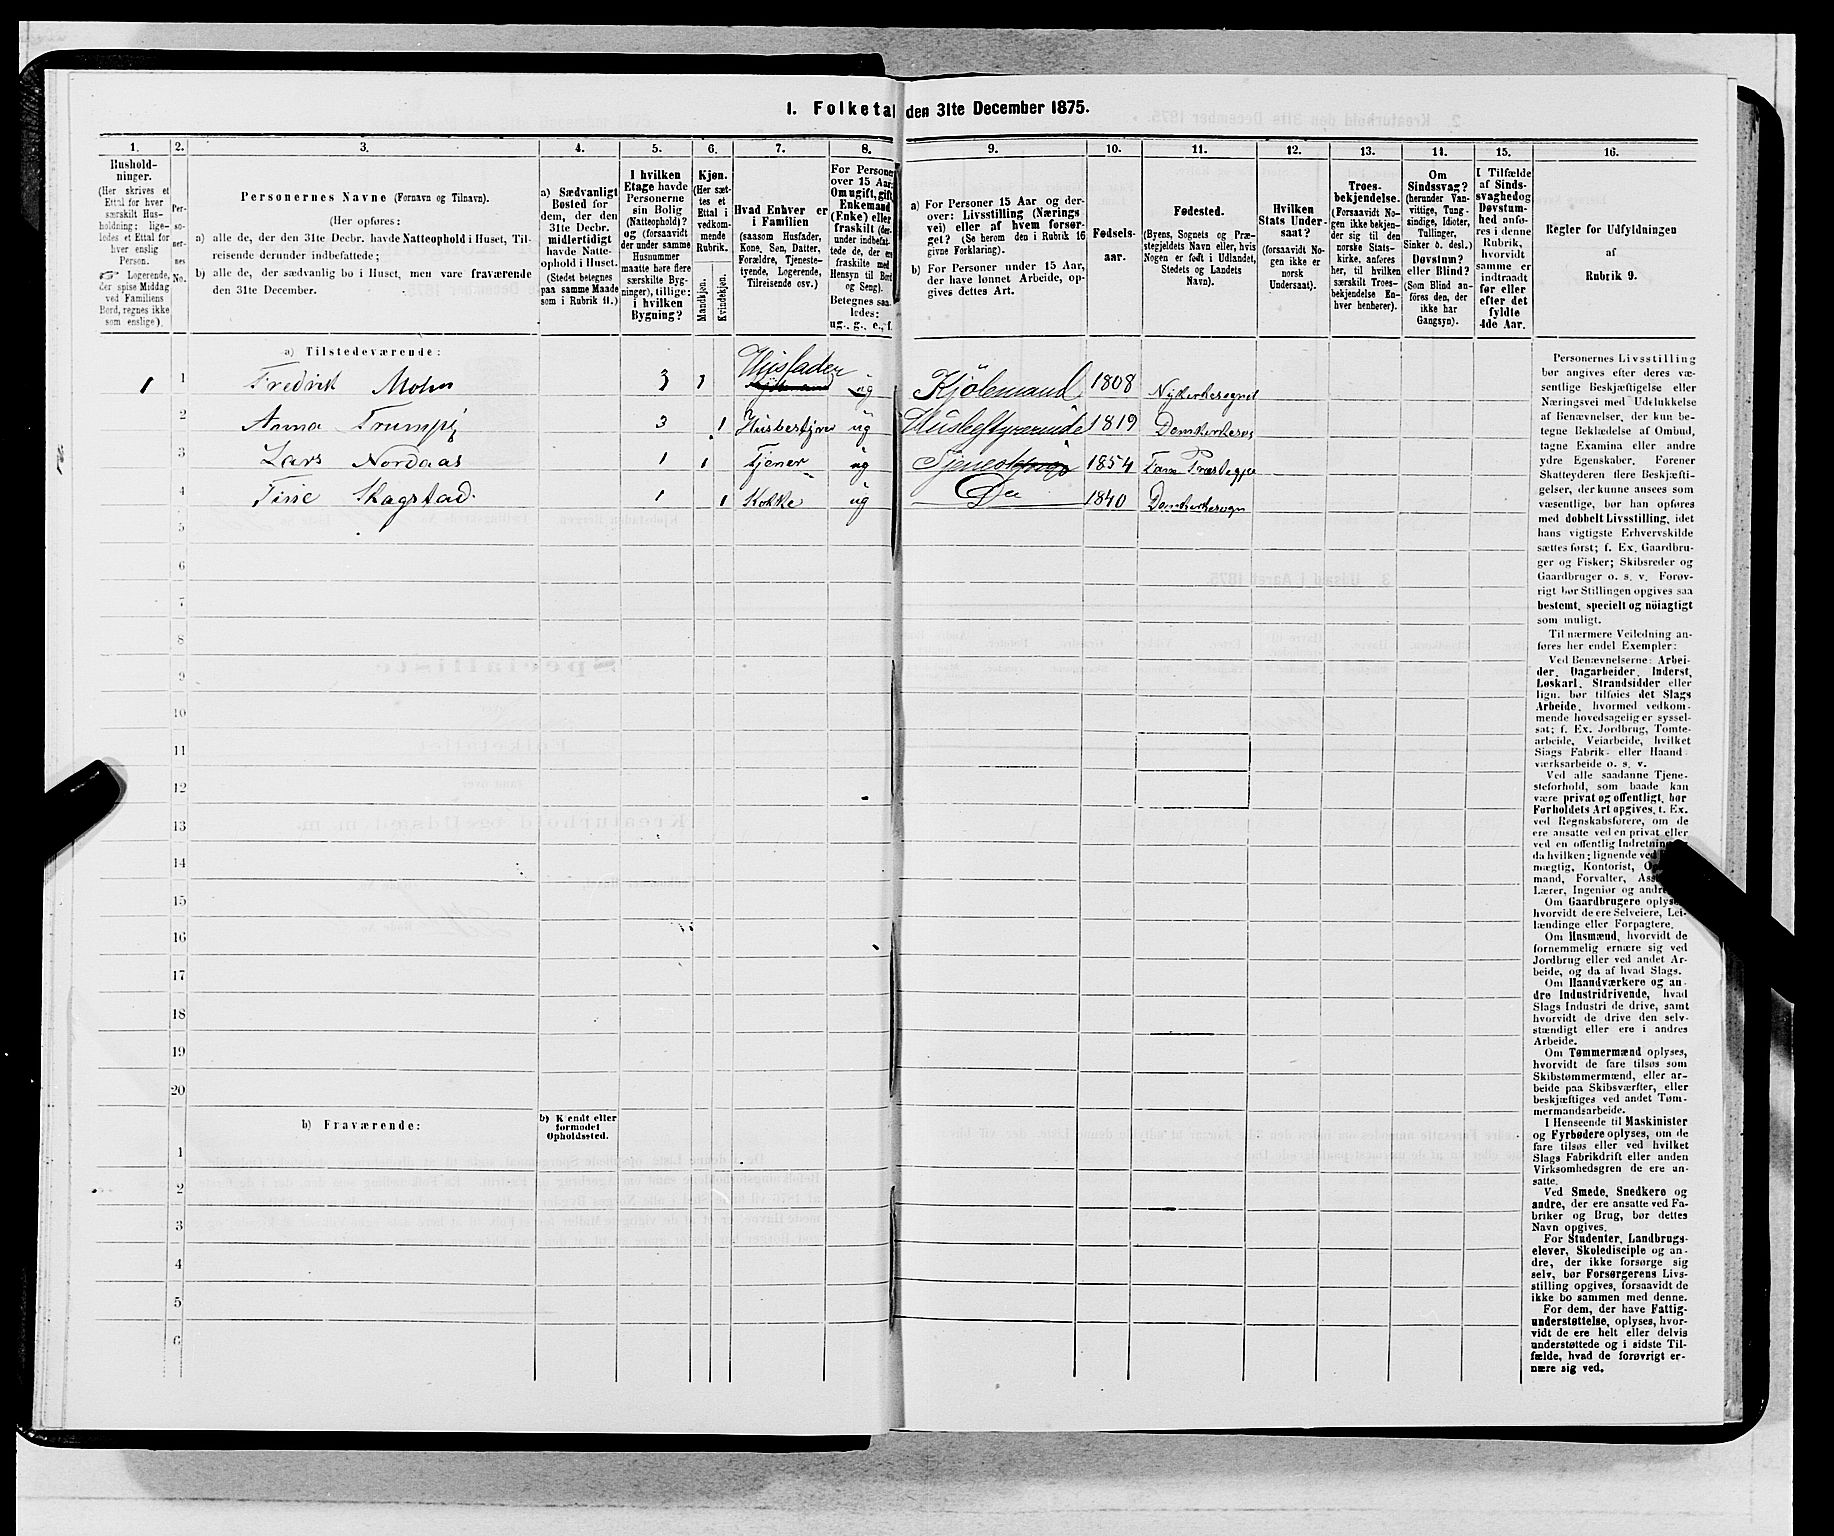 1. Folketal den 31te December 1875.
1. 2. 3. 4. 5. 6. 7. 8. 9. 10. 11. 12. 13. 14. 15. 16.
Hushold-
ninger.
(Her skrives et
Ettal for hver
særskilt Hus-
holdning; lige-
ledes et Ettal for
hver enslig
Person.
☞ Logerende,
der spise Middag
ved Familiens
Bord, regnes ikke
som enslige).
Per-
so-
ner-
nes
No.
Personernes Navne (Fornavn og Tilnavn).
(Her opføres:
a) alle de, der den 31te Decbr. havde Natteophold i Huset, Til-
reisende derunder indbefattede;
b) alle de, der sædvanlig bo i Huset, men vare fraværende
den 31te December.
a) Sædvanligt
Bosted for
dem, der den
31te Decbr.
midlertidigt
havde Natte-
ophold i Huset.
(Stedet betegnes
paa samme Maade
som i Rubrik 11.)
I hvilken
Etage havde
Personerne
sin Bolig
(Natteophold)?
og (forsaavidt
der under samme
Husnummer
maatte høre flere
særskilte Byg-
ninger), tillige:
i hvilken
Bygning?
Kjøn.
(Her sæt-
tes et
Ettal i
vedkom-
mende
Rubrik.
Mandkjøn.
Kvindekjøn.
Hvad Enhver er
i Familien
(saasom Husfader,
Kone, Søn, Datter,
Forældre, Tjeneste-
tyende, Logerende,
Tilreisende osv.)
For Personer
over 15 Aar:
Om ugift, gift,
Enkemand
(Enke) eller
fraskilt (der-
under indbefat-
tede de, der ere
fraskilte med
Hensyn til Bord
og Seng).
Betegnes saa-
ledes:
ug., g., e., f.
a) For Personer 15 Aar og der-
over: Livsstilling (Nærings
vei) eller af hvem forsør-
get? (Se herom den i Rubrik 16
givne Forklaring).
b) For Personer under 15 Aar,
der have lønnet Arbeide, op-
gives dettes Art.
Fødsels-
aar.
Fødested.
(Byens, Sognets og Præ-
stegjeldets Navn eller, hvis
Nogen er født i Udlandet,
Stedets og Landets
Navn).
Hvilken
Stats Under-
saat?
(forsaavidt No-
gen ikke er
norsk
Undersaat).
Troes-
bekjendelse.
(Forsaavidt No-
gen ikke bekjen-
der sig til den
norske Stats-
kirke, anføres
her, til hvilken
særskilt Troes-
bekjendelse En-
hver henhører).
Om
Sindssvag?
(herunder Van-
vittige, Tung-
sindige, Idioter,
Tullinger,
Sinker o. desl.)
Døvstum?
eller Blind?
(Som Blind an-
føres den, der
ikke har
Gangsyn).
I Tilfælde
af Sinds-
svaghed og
Døvstum-
hed anfø-
res i denne
Rubrik,
hvorvidt
samme er
indtraadt
før eller
efter det
fyldte
4de Aar.
Regler for Udfyldningen
af
Rubrik 9.
a) Tilstedeværende:
1 1 Fredrik Mohn 3 1 Husfader ug Kjøbmand 1808 Nykirkesognet
2 Anna Trumpij 3 1 Husbestyrer ug Husbestyrerinde 1819 Domkirkesog
3 Lars Nordaas 1 1 Tjener ug 1854 Fane Præstegje
4 Tine Skagstad. 1 1 Kokke ug Do 1840 Domkirkesogn
5
6
7
8
9
10
11
12
13
14
15
16
17
18
19
20
b) Fraværende:
b) Kjendt eller
formodet
Opholdssted.
1
2
3
4
5
6
Personernes Livsstilling
bør angives efter deres væ-
sentlige Beskjæftigelse eller
Næringsvei med Udelukkelse
af Benævnelser, der kun be-
tegne Beklædelse af Ombud,
tagne Examina eller andre
ydre Egenskaber. Forener
Skatteyderen flere Beskjæfti-
gelser, der kunne ansees som
væsentlige, bør han opføres
med dobbelt Livsstilling, idet
hans vigtigste Erhvervskilde
sættes først; f. Ex. Gaardbru-
ger og Fisker; Skibsreder og
Gaardbruger o. s. v. Forøv-
rigt bør Stillingen opgives saa
bestemt, specielt og nöiagtigt
som muligt.
Til nærmere Veiledning an-
føres her endel Exempler:
Ved Benævnelserne: Arbei-
der, Dagarbeider, Inderst,
Løskarl, Strandsidder eller
lign. bør tilføies det Slags
Arbeide, hvormed vedkom-
mende hovedsagelig er syssel-
sat; f. Ex. Jordbrug, Tomte-
arbeide, Veiarbeide, hvilket
Slags Fabrik- eller Haand-
værksarbeide o. s. v.
Ved alle saadanne Tjene-
steforhold, som baade kan
være privat og offentligt, bør
Forholdets Art opgives, t. Ex.
ved Regnskabsførere, om de
ere ansatte ved en privat eller
ved en offentlig Indretning
da hvilken; lignende ved
mægtig, Kontorist,
mand, Forvalter,
Lærer, Ingeniør og andre
Om Gaardbrugere oplyses
hvorvidt de ere Selveiere, Lei-
lændinge eller Forpagtere.
Om Husmænd, hvorvidt de
fornemmelig ernære sig ved
Jordbrug eller ved andet Ar-
beide, og da af hvad Slags.
Om Haandværkere og an-
dre Industridrivende, hvad
Slags Industri de drive, samt
hvorvidt de drive den selv-
stændigt eller ere i andres
Arbeide.
Om Tømmermænd oplyses,
hvorvidt de fare tilsøs som
Skibstømmermænd, eller ar-
beide paa Skibsværfter, eller
beskjæftiges ved andet Tøm-
mermandsarbeide.
I Henseende til Maskinister
og Fyrbødere oplyses, om de
fare tilsøs eller ved hvilket
Slags Fabrikdrift eller anden
Virksomhedsgren de ere an-
satte.
Ved Smede, Snedkere og
andre, der ere ansatte ved Fa-
briker og Brug, bør dettes
Navn opgives.
For Studenter, Landbrugs-
elever, Skoledisciple og an-
dre, der ikke forsørge sig
selv, bør Forsørgerens Livs-
stilling opgives, forsaavidt de
ikke bo sammen med denne.
For dem, der have Fattig-
understøttelse, oplyses, hvor-
vidt de ere helt eller delvis
understøttede og i sidste Til-
fælde, hvad de forøvrigt er-
nære sig ved.